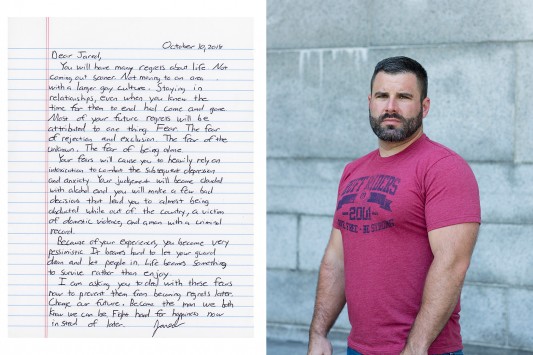 October 10, 2016
Dear Jarred,
You will have many regrets about life. Not
coming out sooner. Not moving to an area
with a larger gay culture. Staying in
relationships, even when you knew the
time for them to end had come and gone.
Most of your future regrets will be
attributed to one thing. Fear. The fear
of rejection and exclusion. The fear of the
unknown. The fear of being alone.
Your fears will cause you to heavily rely on
intoxication to combat the subsequent depression
and anxiety. Your judgement will become clouded
with alcohol and you will make a few bad
decisions that lead you to almost being
abducted while out of the country, a victim
of domestic violence, and a man with a criminal
record.
Because of your experiences, you become very
pessimistic. It becomes hard to let your guard
down and let people in. Life becomes something
to survive rather than enjoy.
I am asking you to deal with these fears
now to prevent them from becoming regrets later.
Change our future. Become the man we both
know we can be. Fight hard for happiness now
instead of later.
RIDERS
2011